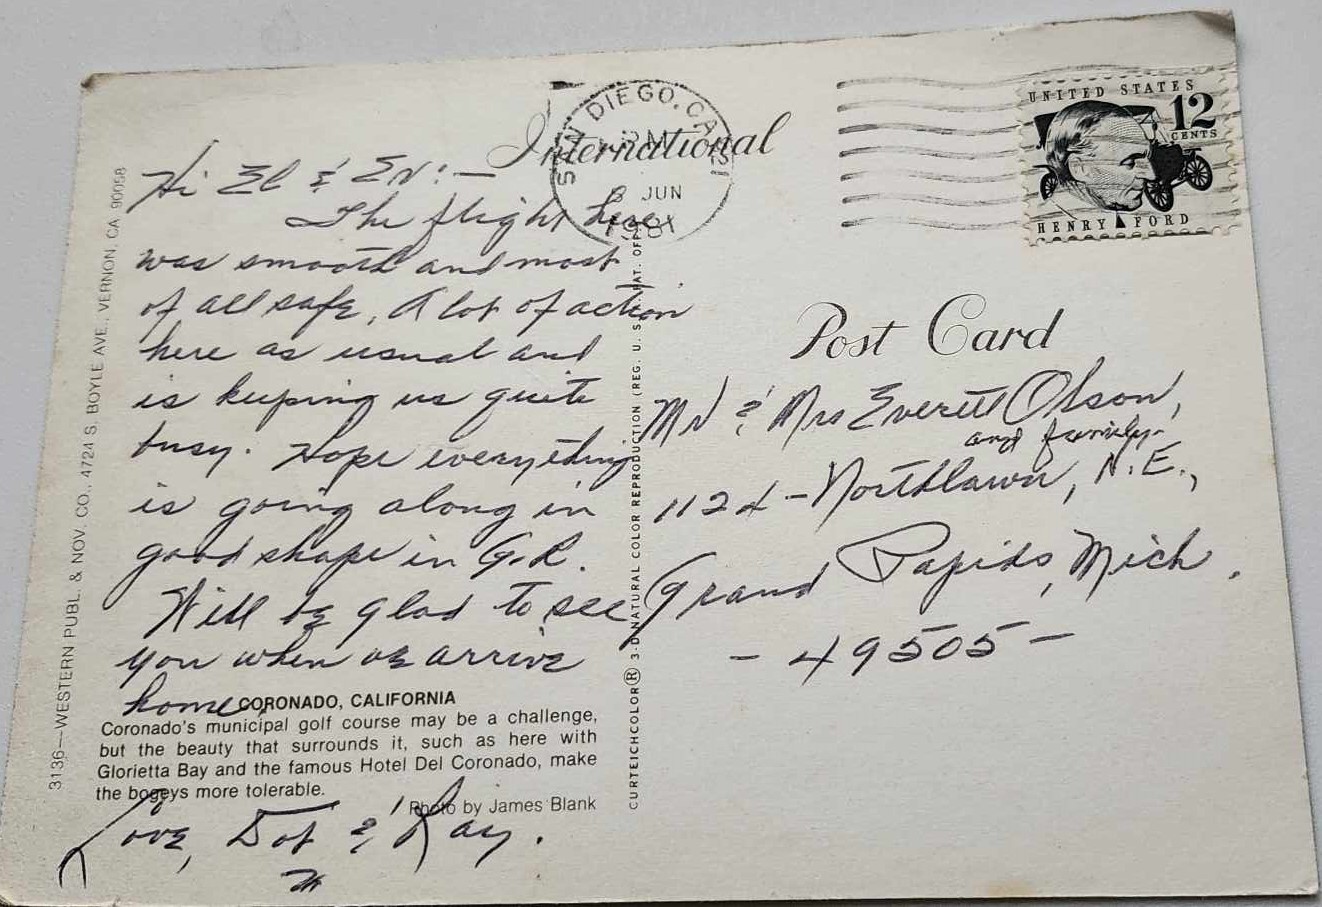 International
SAN DIEGO, CA
PM
JUN
1981
UNITED STATES
12
CENTS
HENRY FORD
Hi El & Ev:-
The flight here
was smooth and most
of all safe, A lot of action
here as usual and
is keeping us quite
busy. Hope everything
is going along in
good shape in G.R.
Will be glad to see
you when we arrive
home.
CORONADO, CALIFORNIA
Coronado's municipal golf course may be a challenge,
but the beauty that surrounds it, such as here with
Glorietta Bay and the famous Hotel Del Coronado, make
the bogeys more tolerable.
Photo by James Blank
Love, Dot & Ray.
3136—WESTERN PUBL. & NOV. CO., 4724 S. BOYLE AVE., VERNON, CA 90058
CURTEICHCOLOR® 3-D NATURAL COLOR REPRODUCTION (REG. U. S. PAT. OFF
Post Card
Mr & Mrs Everett Olson,
and family-
1124-Northlawn, N.E.,
Grand Rapids, Mich.
-49505-